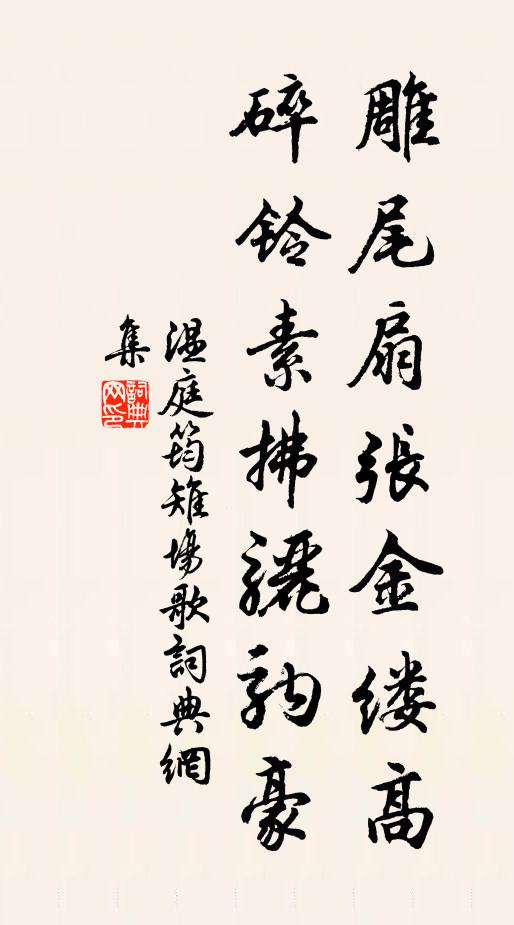 雕尾扇張金缕高
碎铃素拂驪駒豪
温庭筠雉場歌詞典網
集
詞典網印